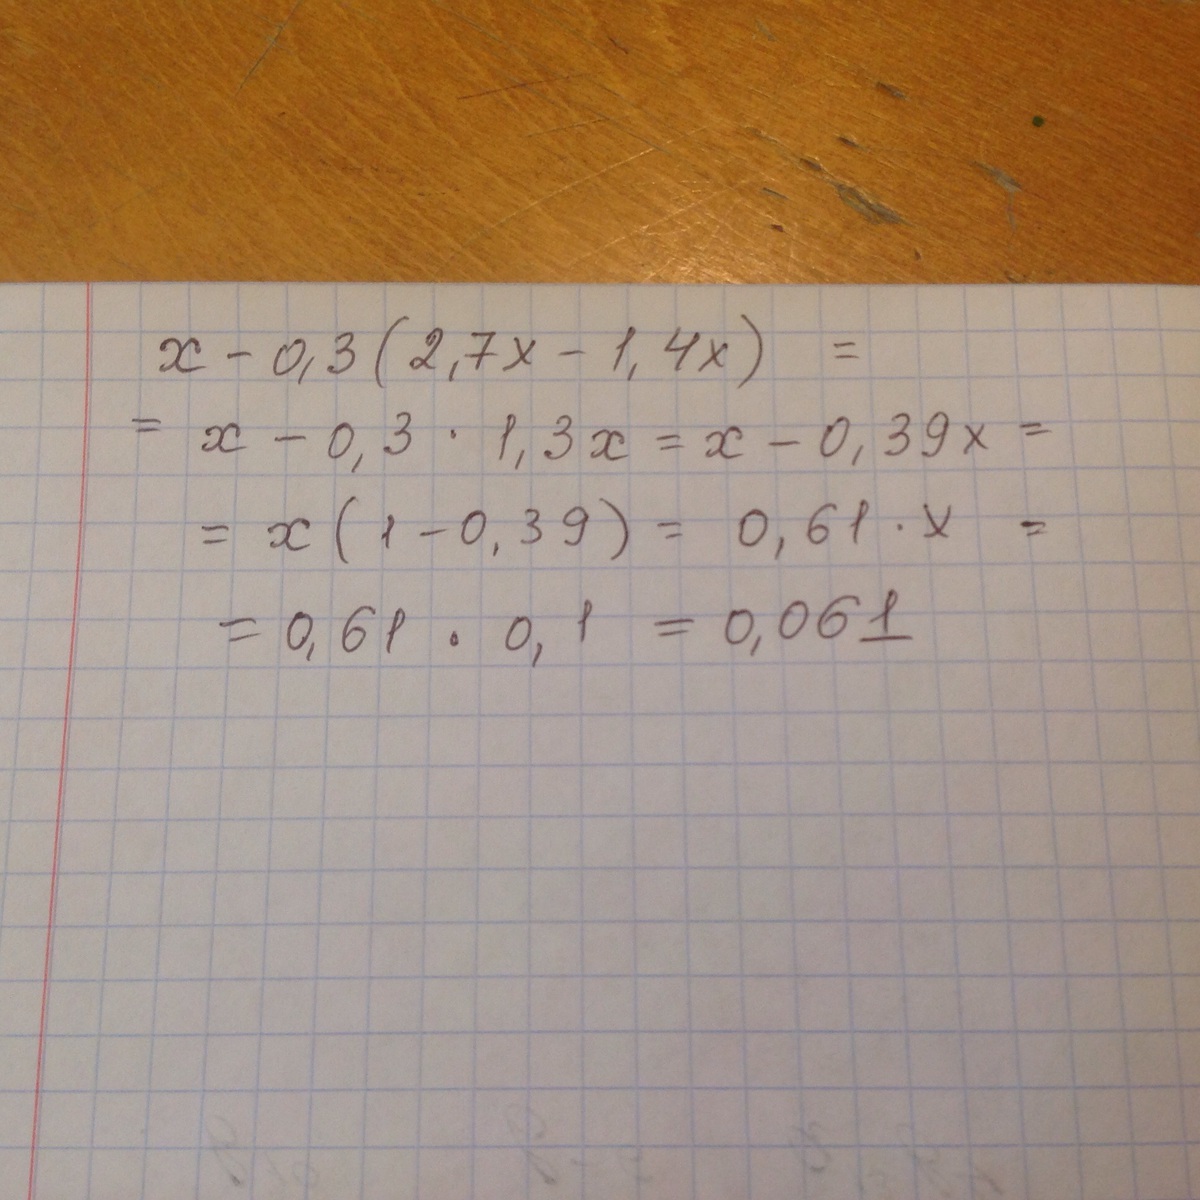 x - 0,3(2,7x - 1,4x) =
= x - 0,3 · 1,3x = x - 0,39x =
= x(1 - 0,39) = 0,61 · x =
= 0,61 · 0,1 = 0,061